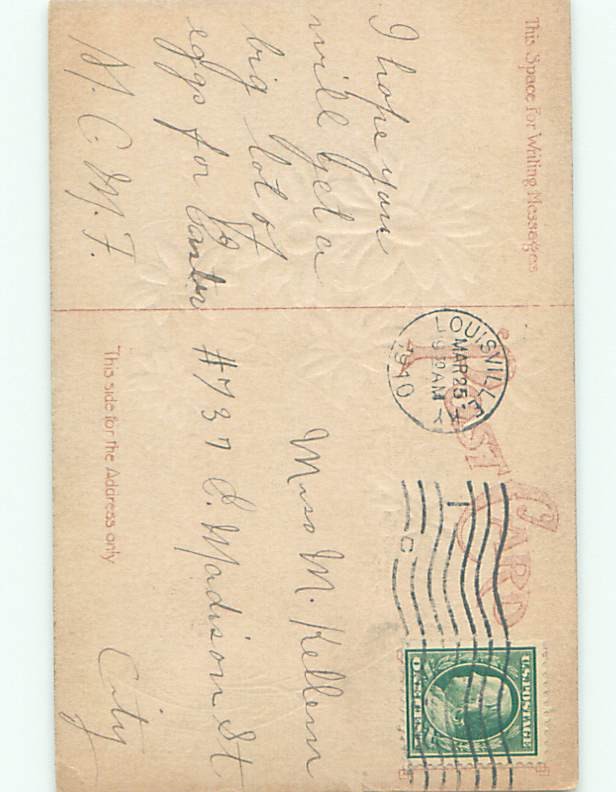 This Space for Writing Messages
I hope you
will get a
big lot of
eggs for Easter
M. C. M. F.
POST CARD
LOUISVILLE
MAR 25
9 30 AM
KY
1910
U.S. POSTAGE
ONE CENT
Miss M. Kellem
#737 E. Madison St
City
This side for the Address only